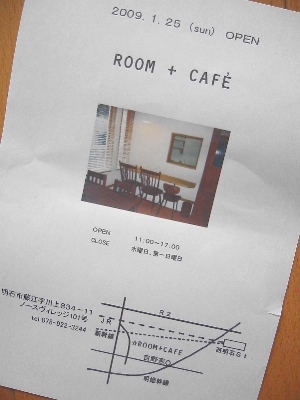 2009. 1. 25 (sun) OPEN
ROOM + CAFÉ
OPEN 11:00~17:00
CLOSE 水曜日、第一日曜日
明石市藤江字川上834-11
ノースヴィレッジ101号
tel 078-922-3244
R2
JR
新幹線
西明石St
☆ROOM+CAFE
吉野家○
明姫幹線